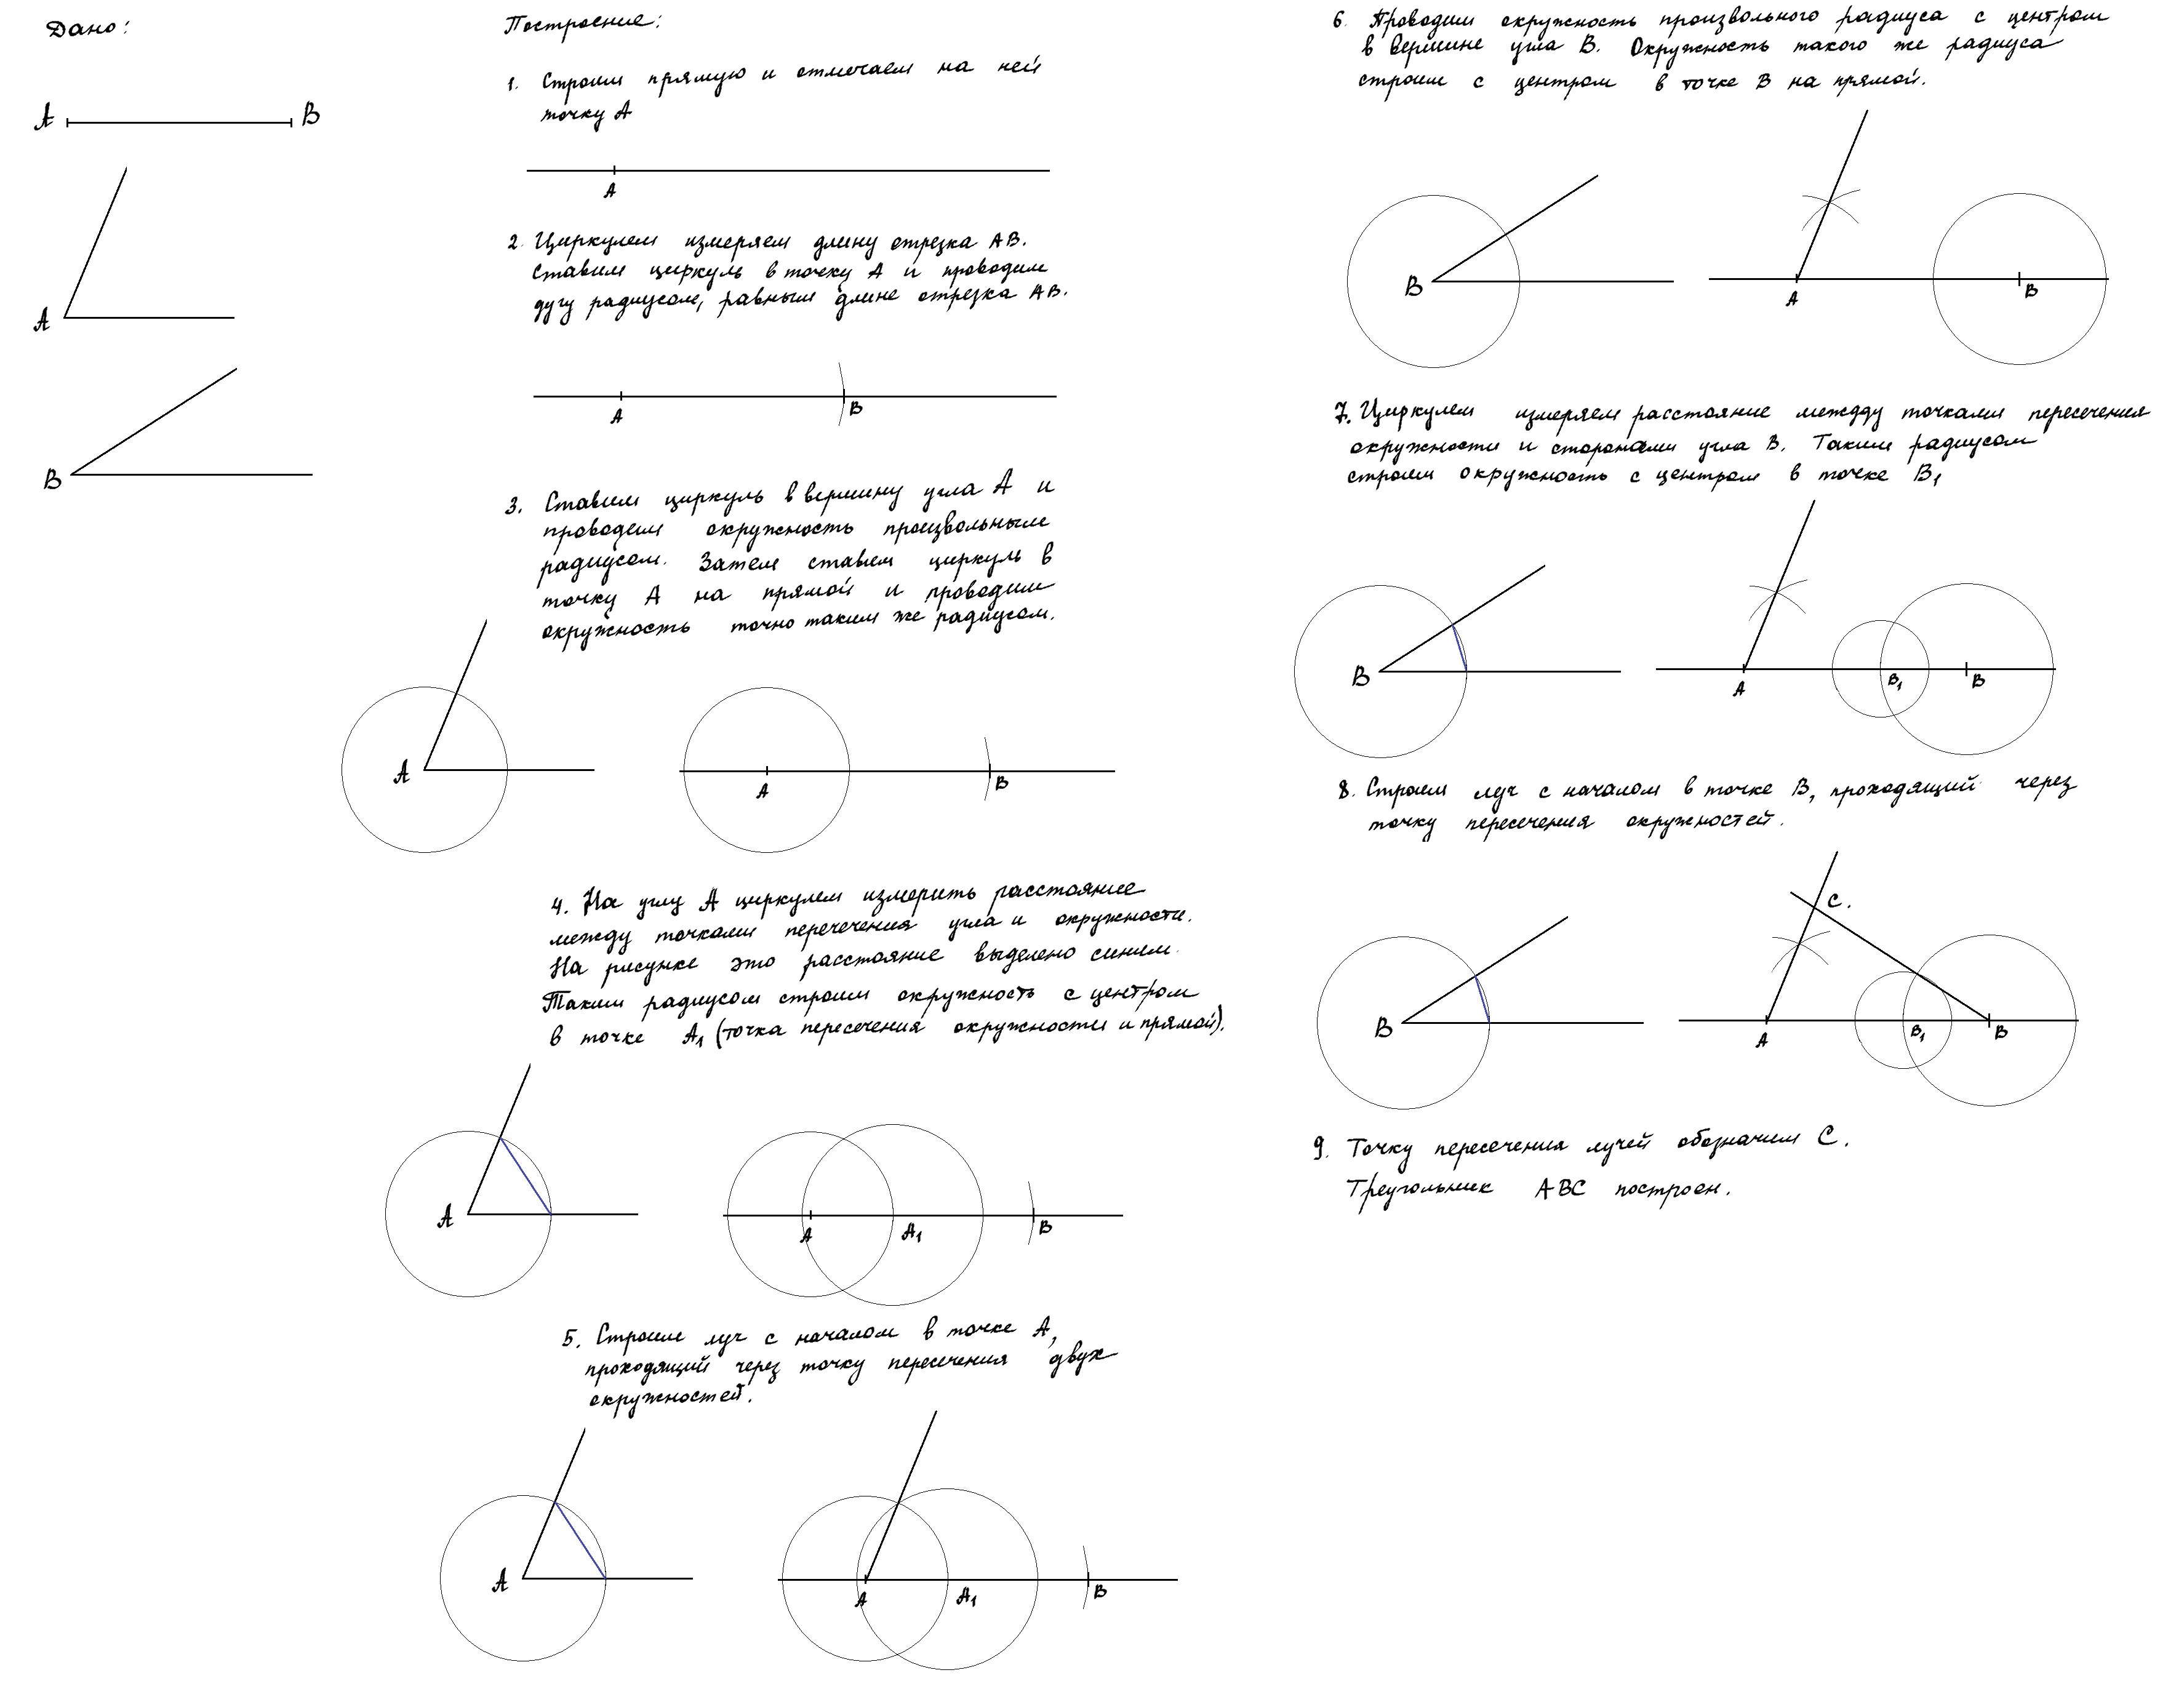 Дано:
А
В
А
В
Построение:
1. Строим прямую и отмечаем на ней
точку А
А
2. Циркулем измеряем длину отрезка АВ.
Ставим циркуль в точку А и проводим
дугу радиусом, равным длине отрезка АВ.
А
В
3. Ставим циркуль в вершину угла А и
проводим окружность произвольным
радиусом. Затем ставим циркуль в
точку А на прямой и проводим
окружность точно таким же радиусом.
А
А
В
4. На углу А циркулем измерить расстояние
между точками перечечения угла и окружности.
На рисунке это расстояние выделено синим.
Таким радиусом строим окружность с центром
в точке А1 (точка пересечения окружности и прямой).
А
А
А1
В
5. Строим луч с началом в точке А,
проходящий через точку пересечения двух
окружностей.
А
А
А1
В
6. Проводим окружность произвольного радиуса с центром
в вершине угла В. Окружность такого же радиуса
строим с центром в точке В на прямой.
В
А
В
7. Циркулем измеряем расстояние межДду точками пересечения
окружности и сторонами угла В. Таким радиусом
строим окружность с центром в точке В1
В
А
В1
В
8. Строим луч с началом в точке В, проходящий через
точку пересечения окружностей.
С.
В
А
В1
В
9. Точку пересечения лучей обозначим С.
Треугольник АВС построен.